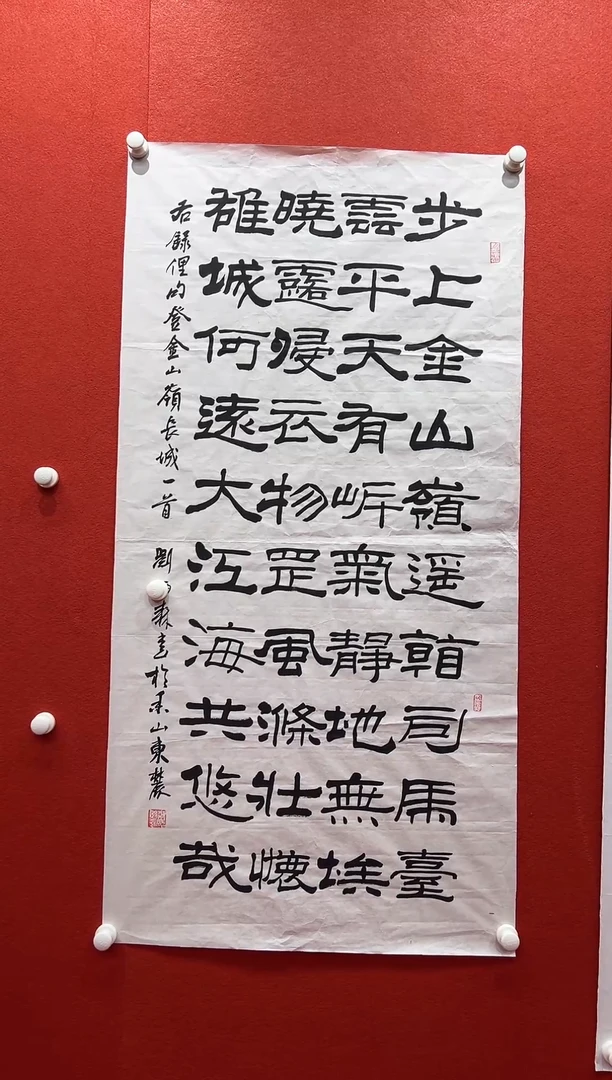 步上金山嶺遥朝司馬臺
雲平天有岸氣靜地無埃
曉露侵衣物罡風滌壯懷
雄城何遠大江海共悠哉
右錄俚句登金山嶺長城一首 劉森書於山東麓